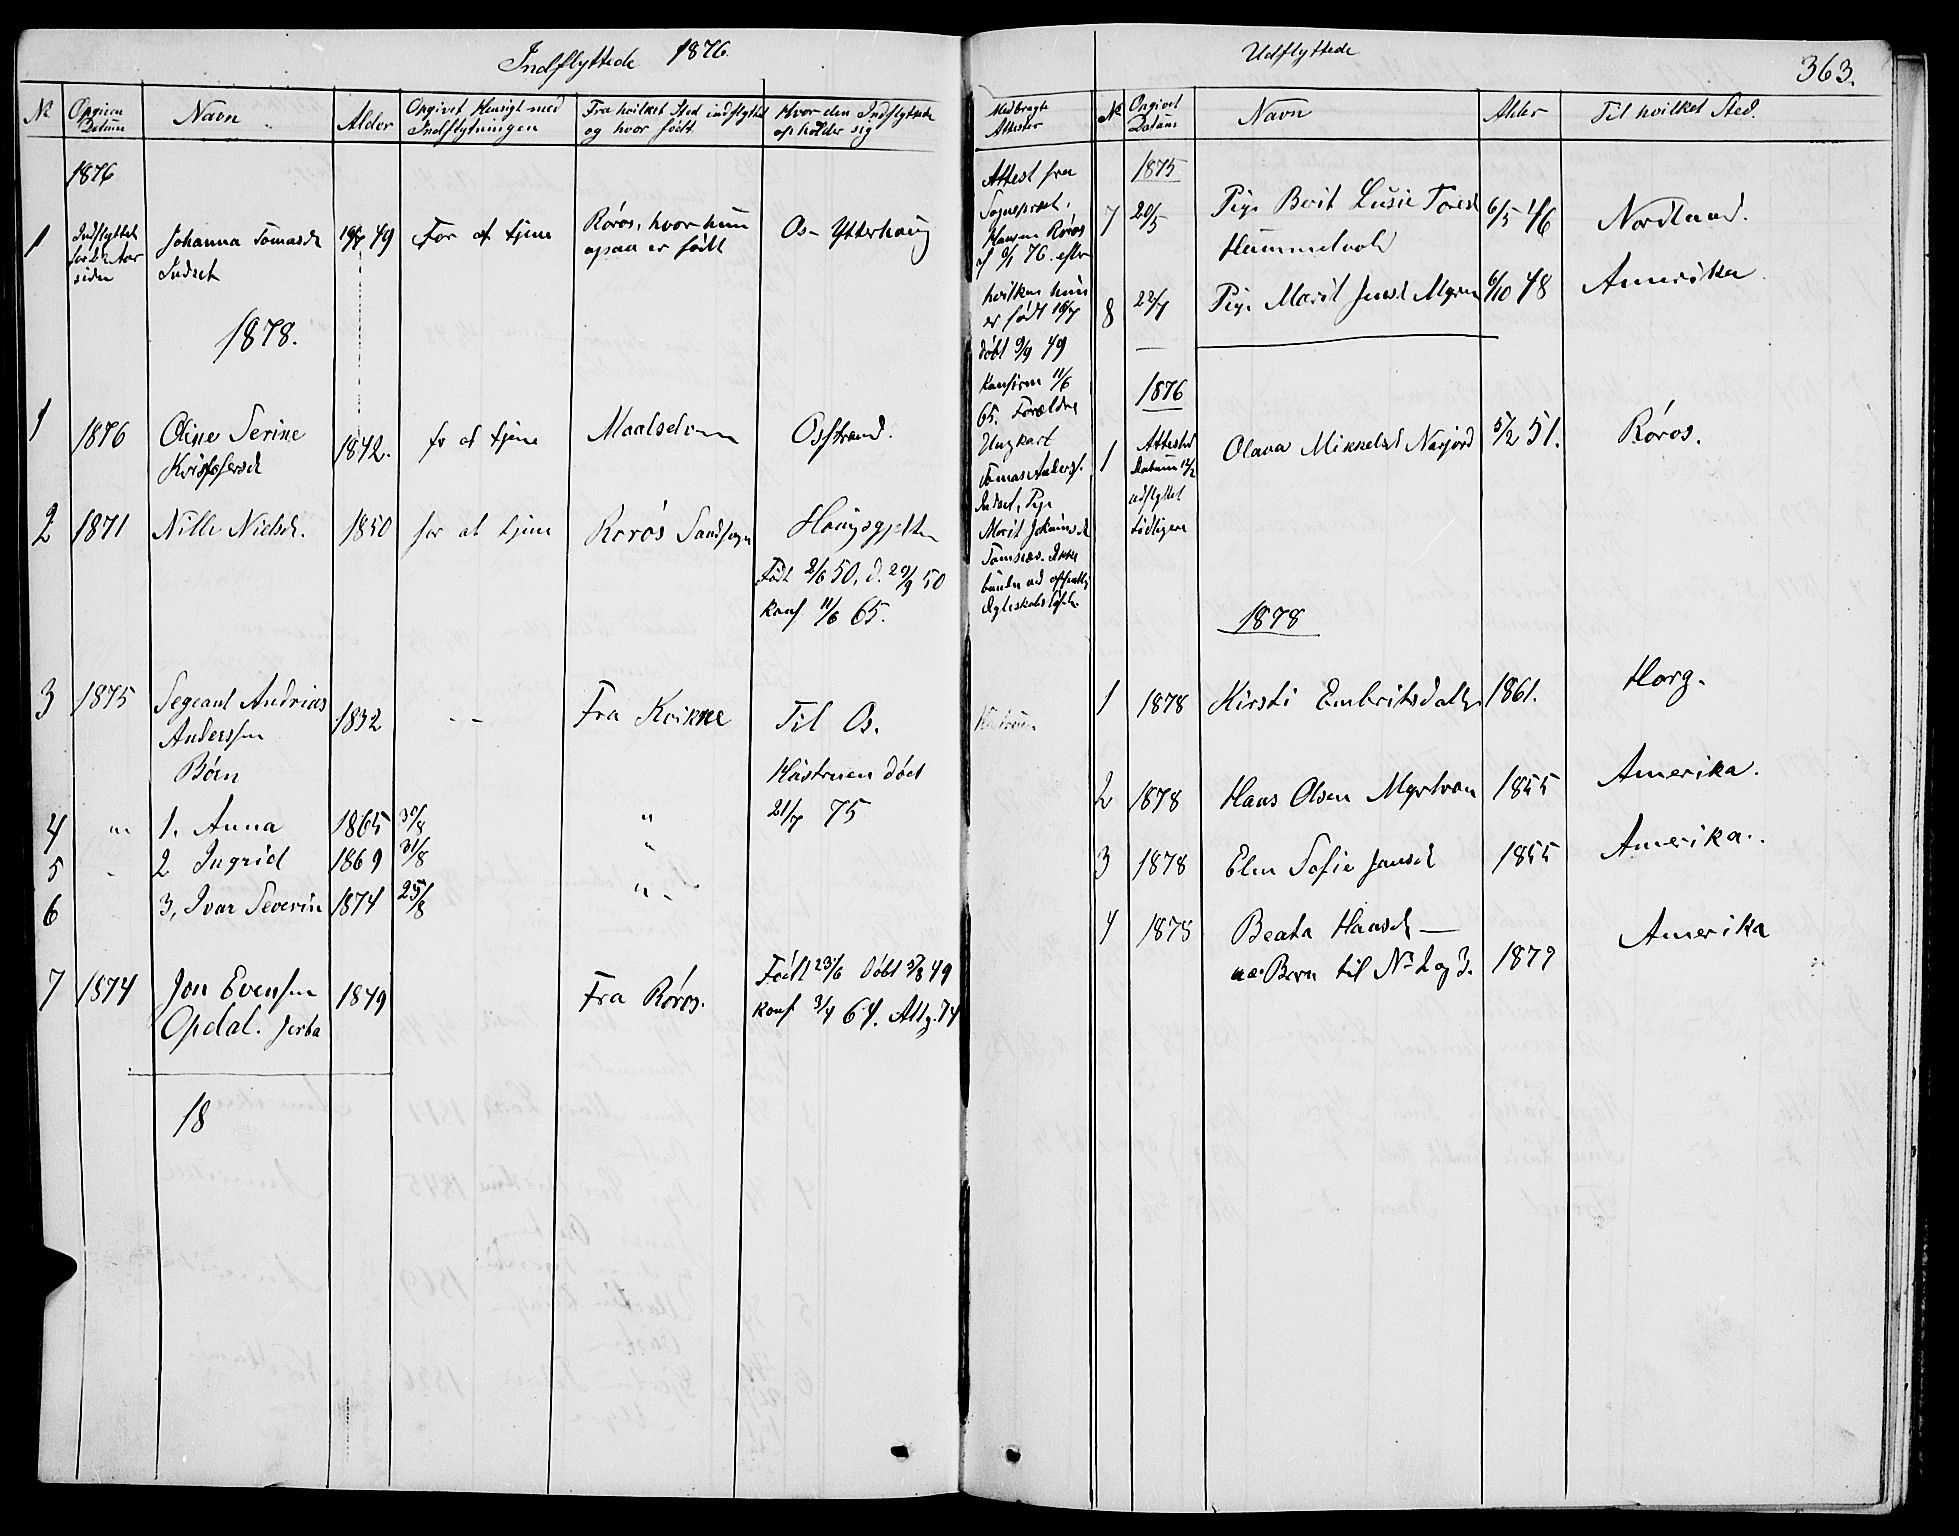 Indflyttede 1876.
No
Opgiven Datum
Navn
Alder
Opgivet Hensigt med Indflytningen
Fra hvilket Sted indflyttet og hvor født
Hvor den Indflyttede opholder sig
1876
1 Indflyttet for 2 Aar siden
Johanna Tomasd
Indset
16/7 49
For at tjene
Røros, hvor hun
ogsaa er født
Os- Ytterhaug
1878.
1 1876 Oline Serine
Kristofersd
1842.
for at tjene
Maalselven
Osstrand.
2 1871 Nille Nielsd. 1850 for at tjene Røros
Født 2/6 50, d. 29/9 50
Konf 11/6 65.
3 1875 Segeant Andrias
Anderssen
1832 - - Fra Kvikne Til Os.
Børn
Hustruen død
21/7 75
4 " 1. Anna 1865 30/8 "
5 " 2 Ingrid 1869 31/8 "
6 3, Ivar Severin 1874 25/8 "
7 1874 Jon Evensen
Opdal.
1849 Fra Røros.
Født 23/6 Døbt 5/8 49
Konf 3/4 64. Att. 74
18
Udflyttede
363.
Medbragte Attester
No
Opgivet Datum
Navn
Alder
Til hvilket Sted.
Attest fra
Sognepræst,
Hansen Røros
76. efter
hvilken hun
er født 16/7
døbt 9/9 49
Konfirm 11/6
65. Forældre
Ungkarl
Tomas Anders.
Indset, Pige
Marit
Tamnes. Ikke
bunden ved offentlig
Egteskabsløfte.
1875
7 20/5 Pige Berit Lusie Toresd
Hummelvold
6/5 46 Nordland.
8 22/7 Pige Marit Jensd Myren 6/10 48 Amerika
1876
1 Attestens
Datum 12/2
udflyttet
tidligere
Olava Mikkelsd Narjord 5/2 51. Røros.
1878
1 1878 Kirsti Embritsdatt. 1861. Horg.
Hustruen
2 1878 Hans Olsen 1855 Amerika.
3 1878 Elen Sofie Jansd 1855 Amerika.
4 1878 Beata Hansd —
Barn til No 2 og 3.
1877 Amerika